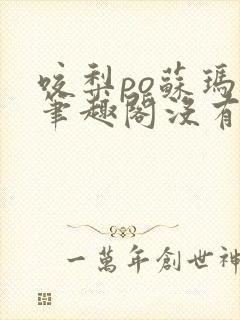 咬梨po蘇瑪
筆趣閣沒有
一萬年創世神